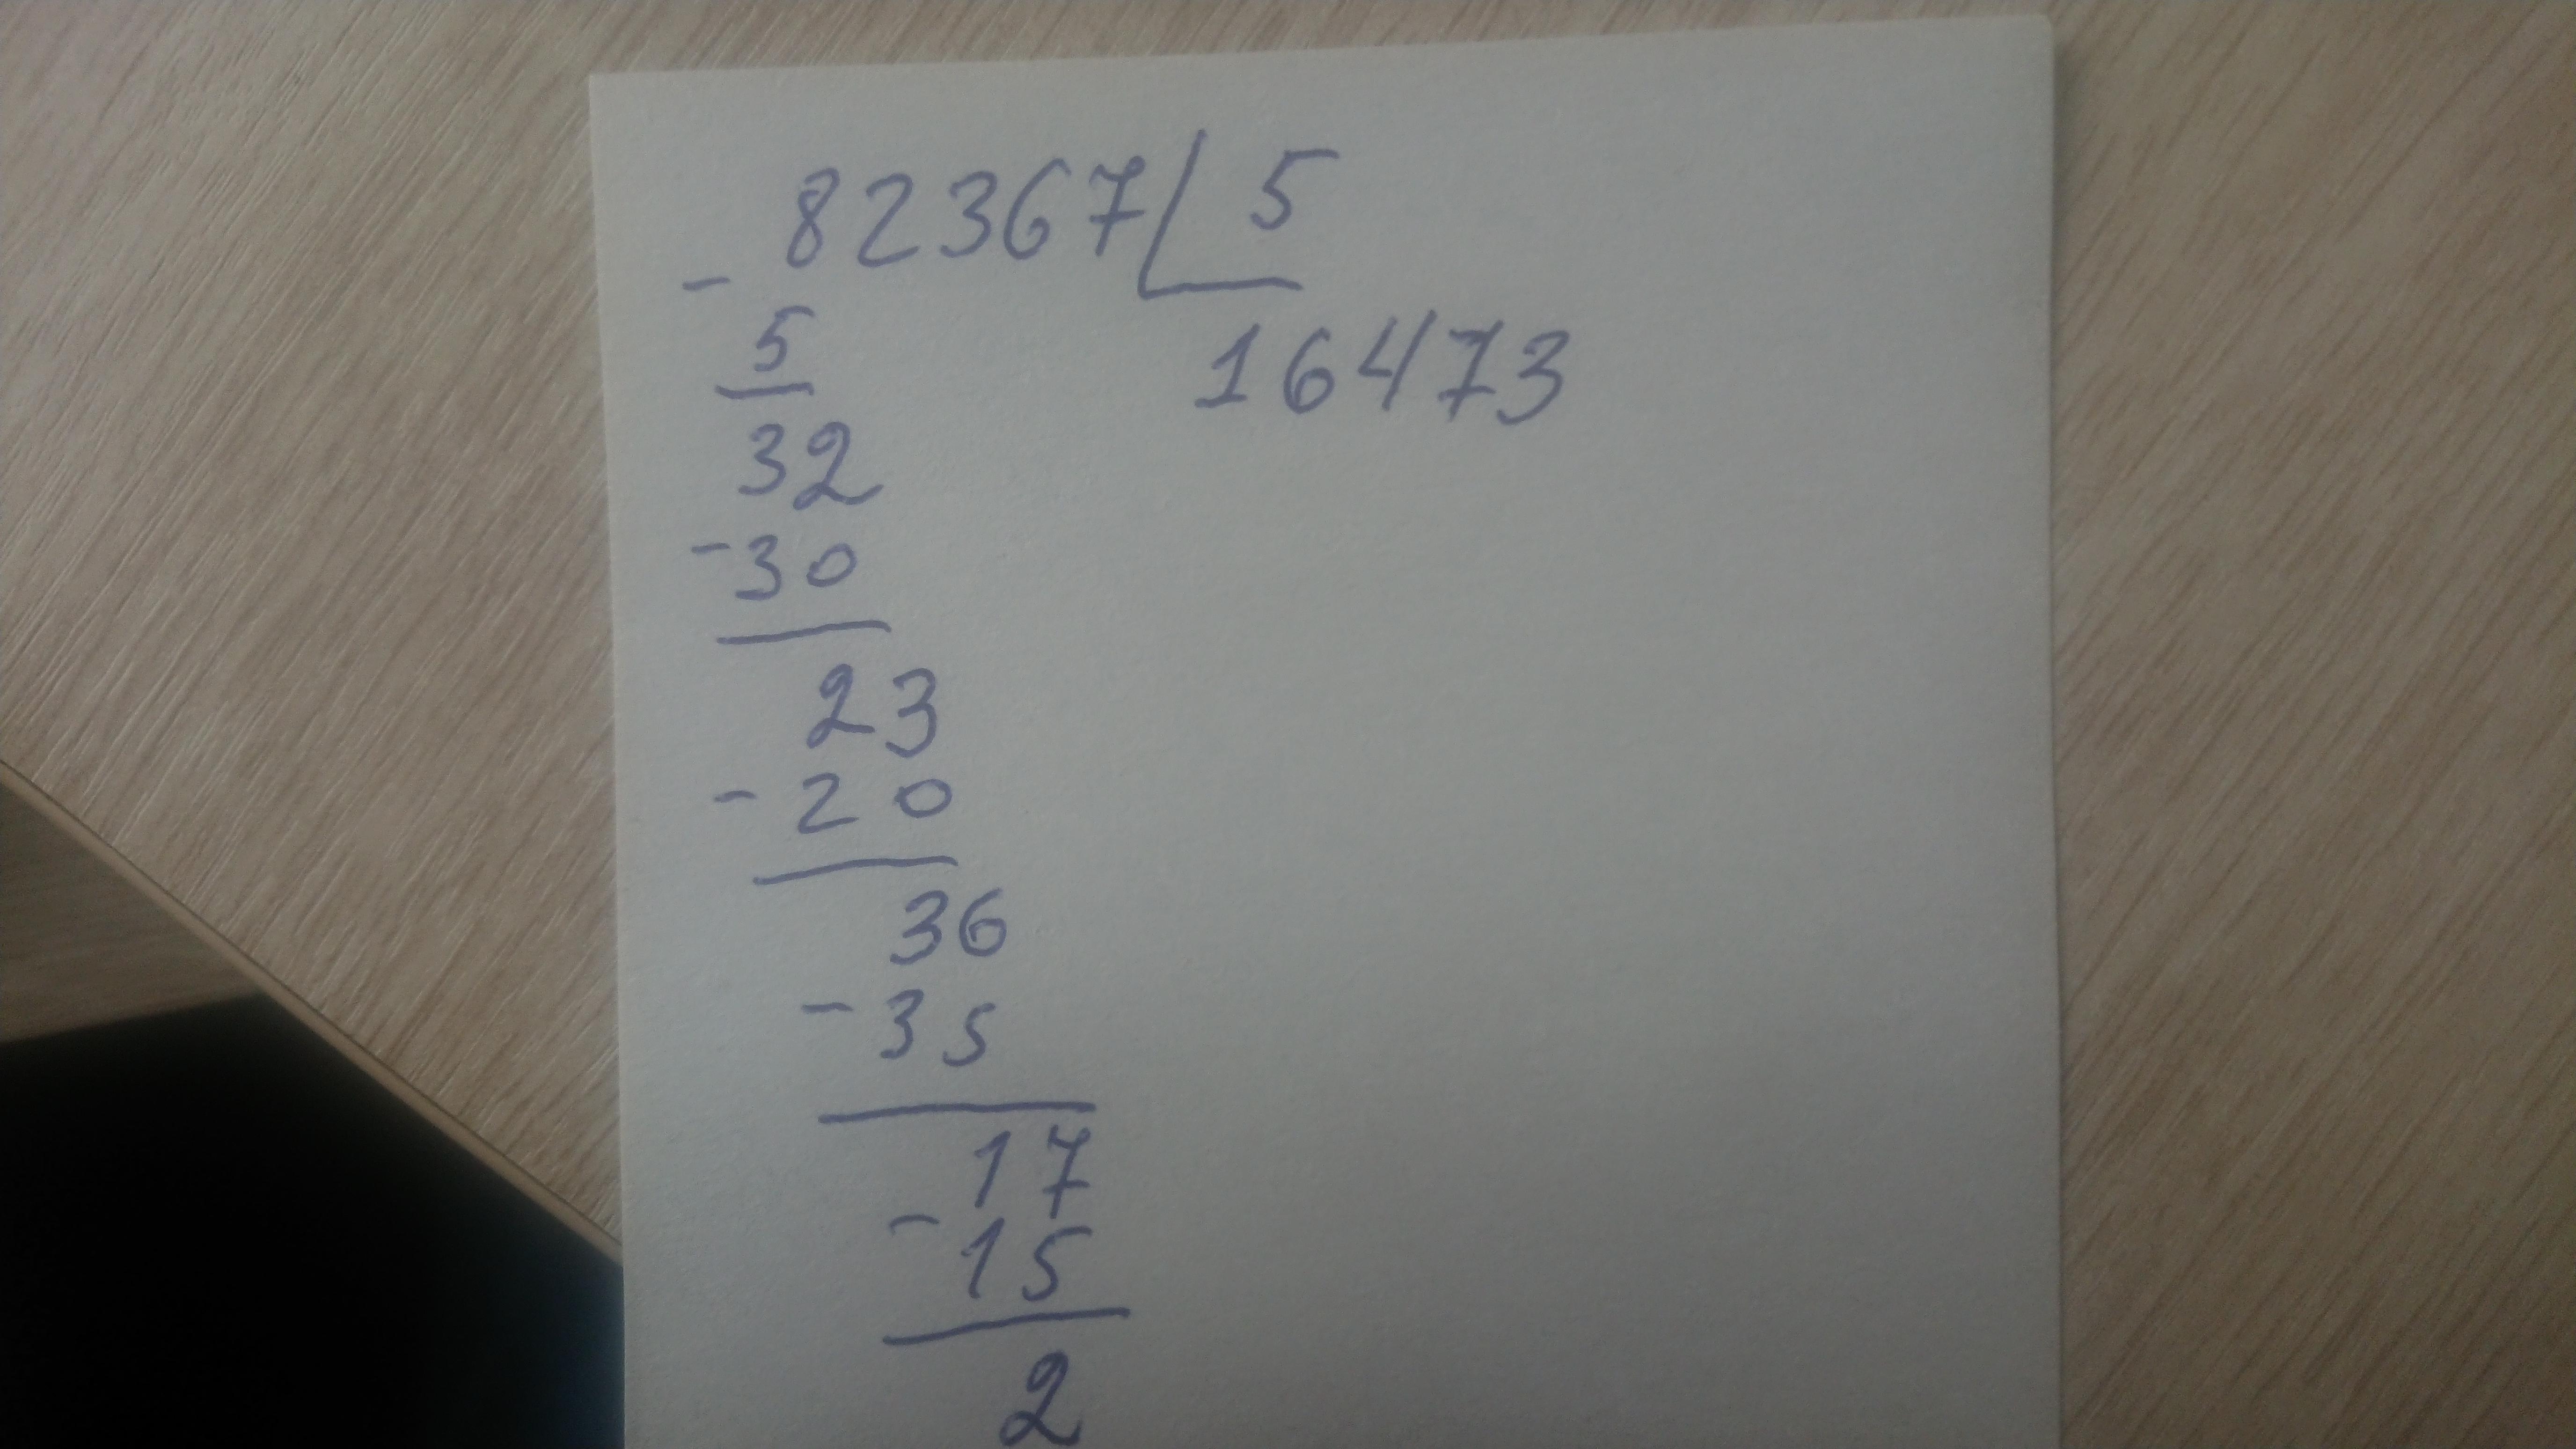 82367 5
-
5 16473
32
-30
23
-20
36
-35
17
-15
2